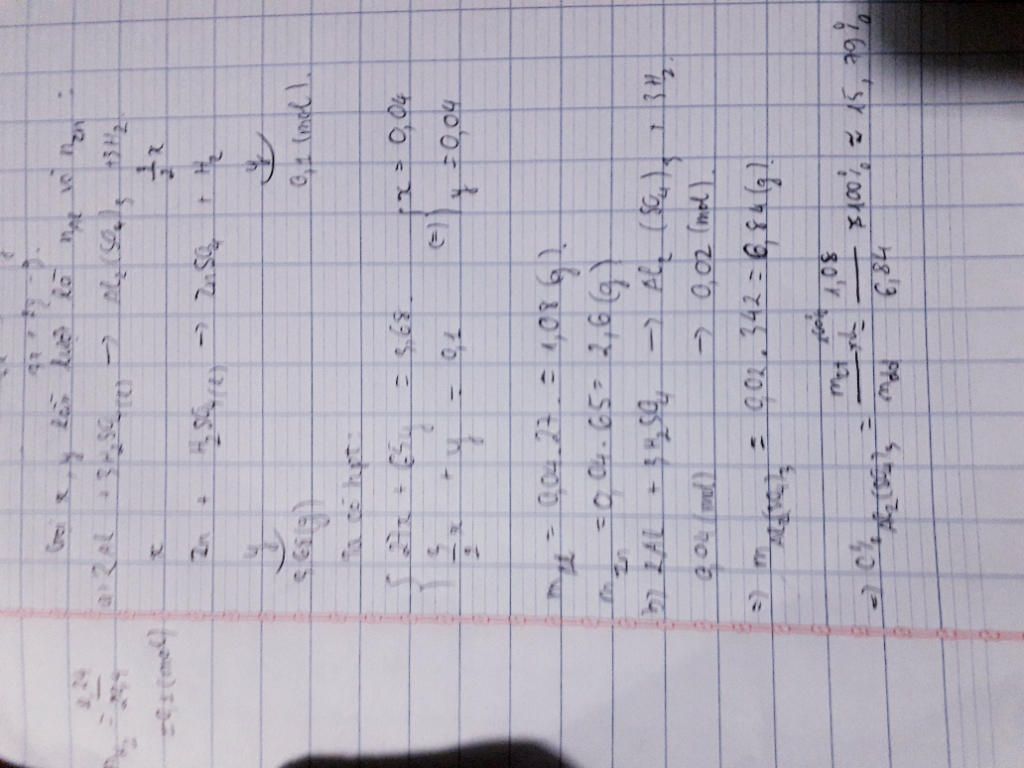 Gọi x, y lần lượt là n Al và n Zn :
n H₂ = 2,24 / 22,4
= 0,1 (mol)
a) 2Al + 3H₂SO₄ (l) → Al₂(SO₄)₃ + 3H₂
x 3/2 x
Zn + H₂SO₄ (l) → ZnSO₄ + H₂
y y
3,68 (g) 0,1 (mol).
Ta có hpt:
{ 27x + 65y = 3,68 (=) { x = 0,04
{ 3/2 x + y = 0,1 { y = 0,04
m Al = 0,04.27 = 1,08 (g).
m Zn = 0,04.65 = 2,6 (g)
b) 2Al + 3H₂SO₄ → Al₂(SO₄)₃ + 3H₂.
0,04 (mol) → 0,02 (mol)
=) m Al₂(SO₄)₃ = 0,02.342 = 6,84 (g).
=) C% Al₂(SO₄)₃ = m ct / m dd × 100% = 1,08 / 6,84 × 100% ≈ 15,79%